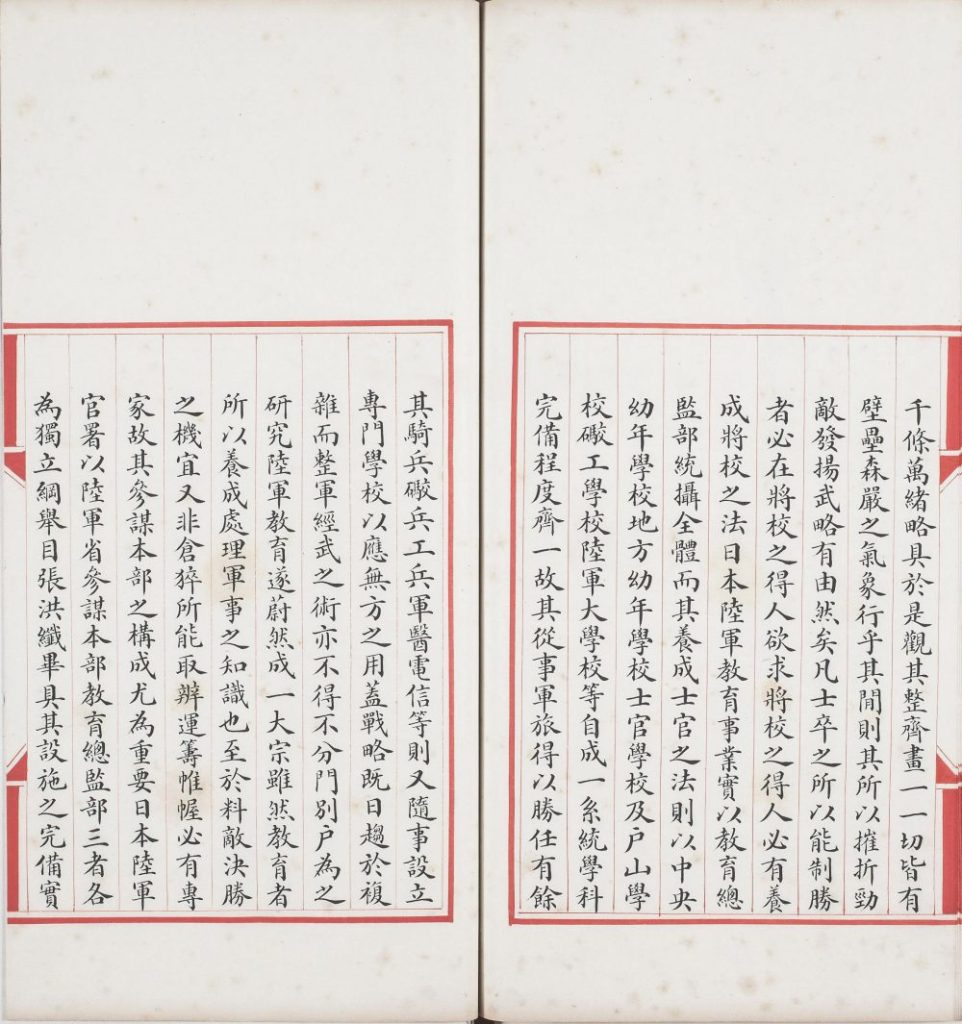 千條萬緒略具於是觀其整齊畫一一切皆有
壁壘森嚴之氣象行乎其間則其所以摧折勁
敵發揚武略有由然矣凡士卒之所以能制勝
者必在將校之得人欲求將校之得人必有養
成將校之法日本陸軍教育事業實以教育總
監部統攝全體而其養成士官之法則以中央
幼年學校地方幼年學校士官學校及戶山學
校礮工學校陸軍大學校等自成一系統學科
完備程度齊一故其從事軍旅得以勝任有餘
其騎兵礮兵工兵軍醫電信等則又隨事設立
專門學校以應無方之用蓋戰略既日趨於複
雜而整軍經武之術亦不得不分門別戶為之
研究陸軍教育遂蔚然成一大宗雖然教育者
所以養成處理軍事之知識也至於料敵決勝
之機宜又非倉猝所能取辦運籌帷幄必有專
家故其參謀本部之構成尤為重要日本陸軍
官署以陸軍省參謀本部教育總監部三者各
為獨立綱舉目張洪纖畢具其設施之完備實